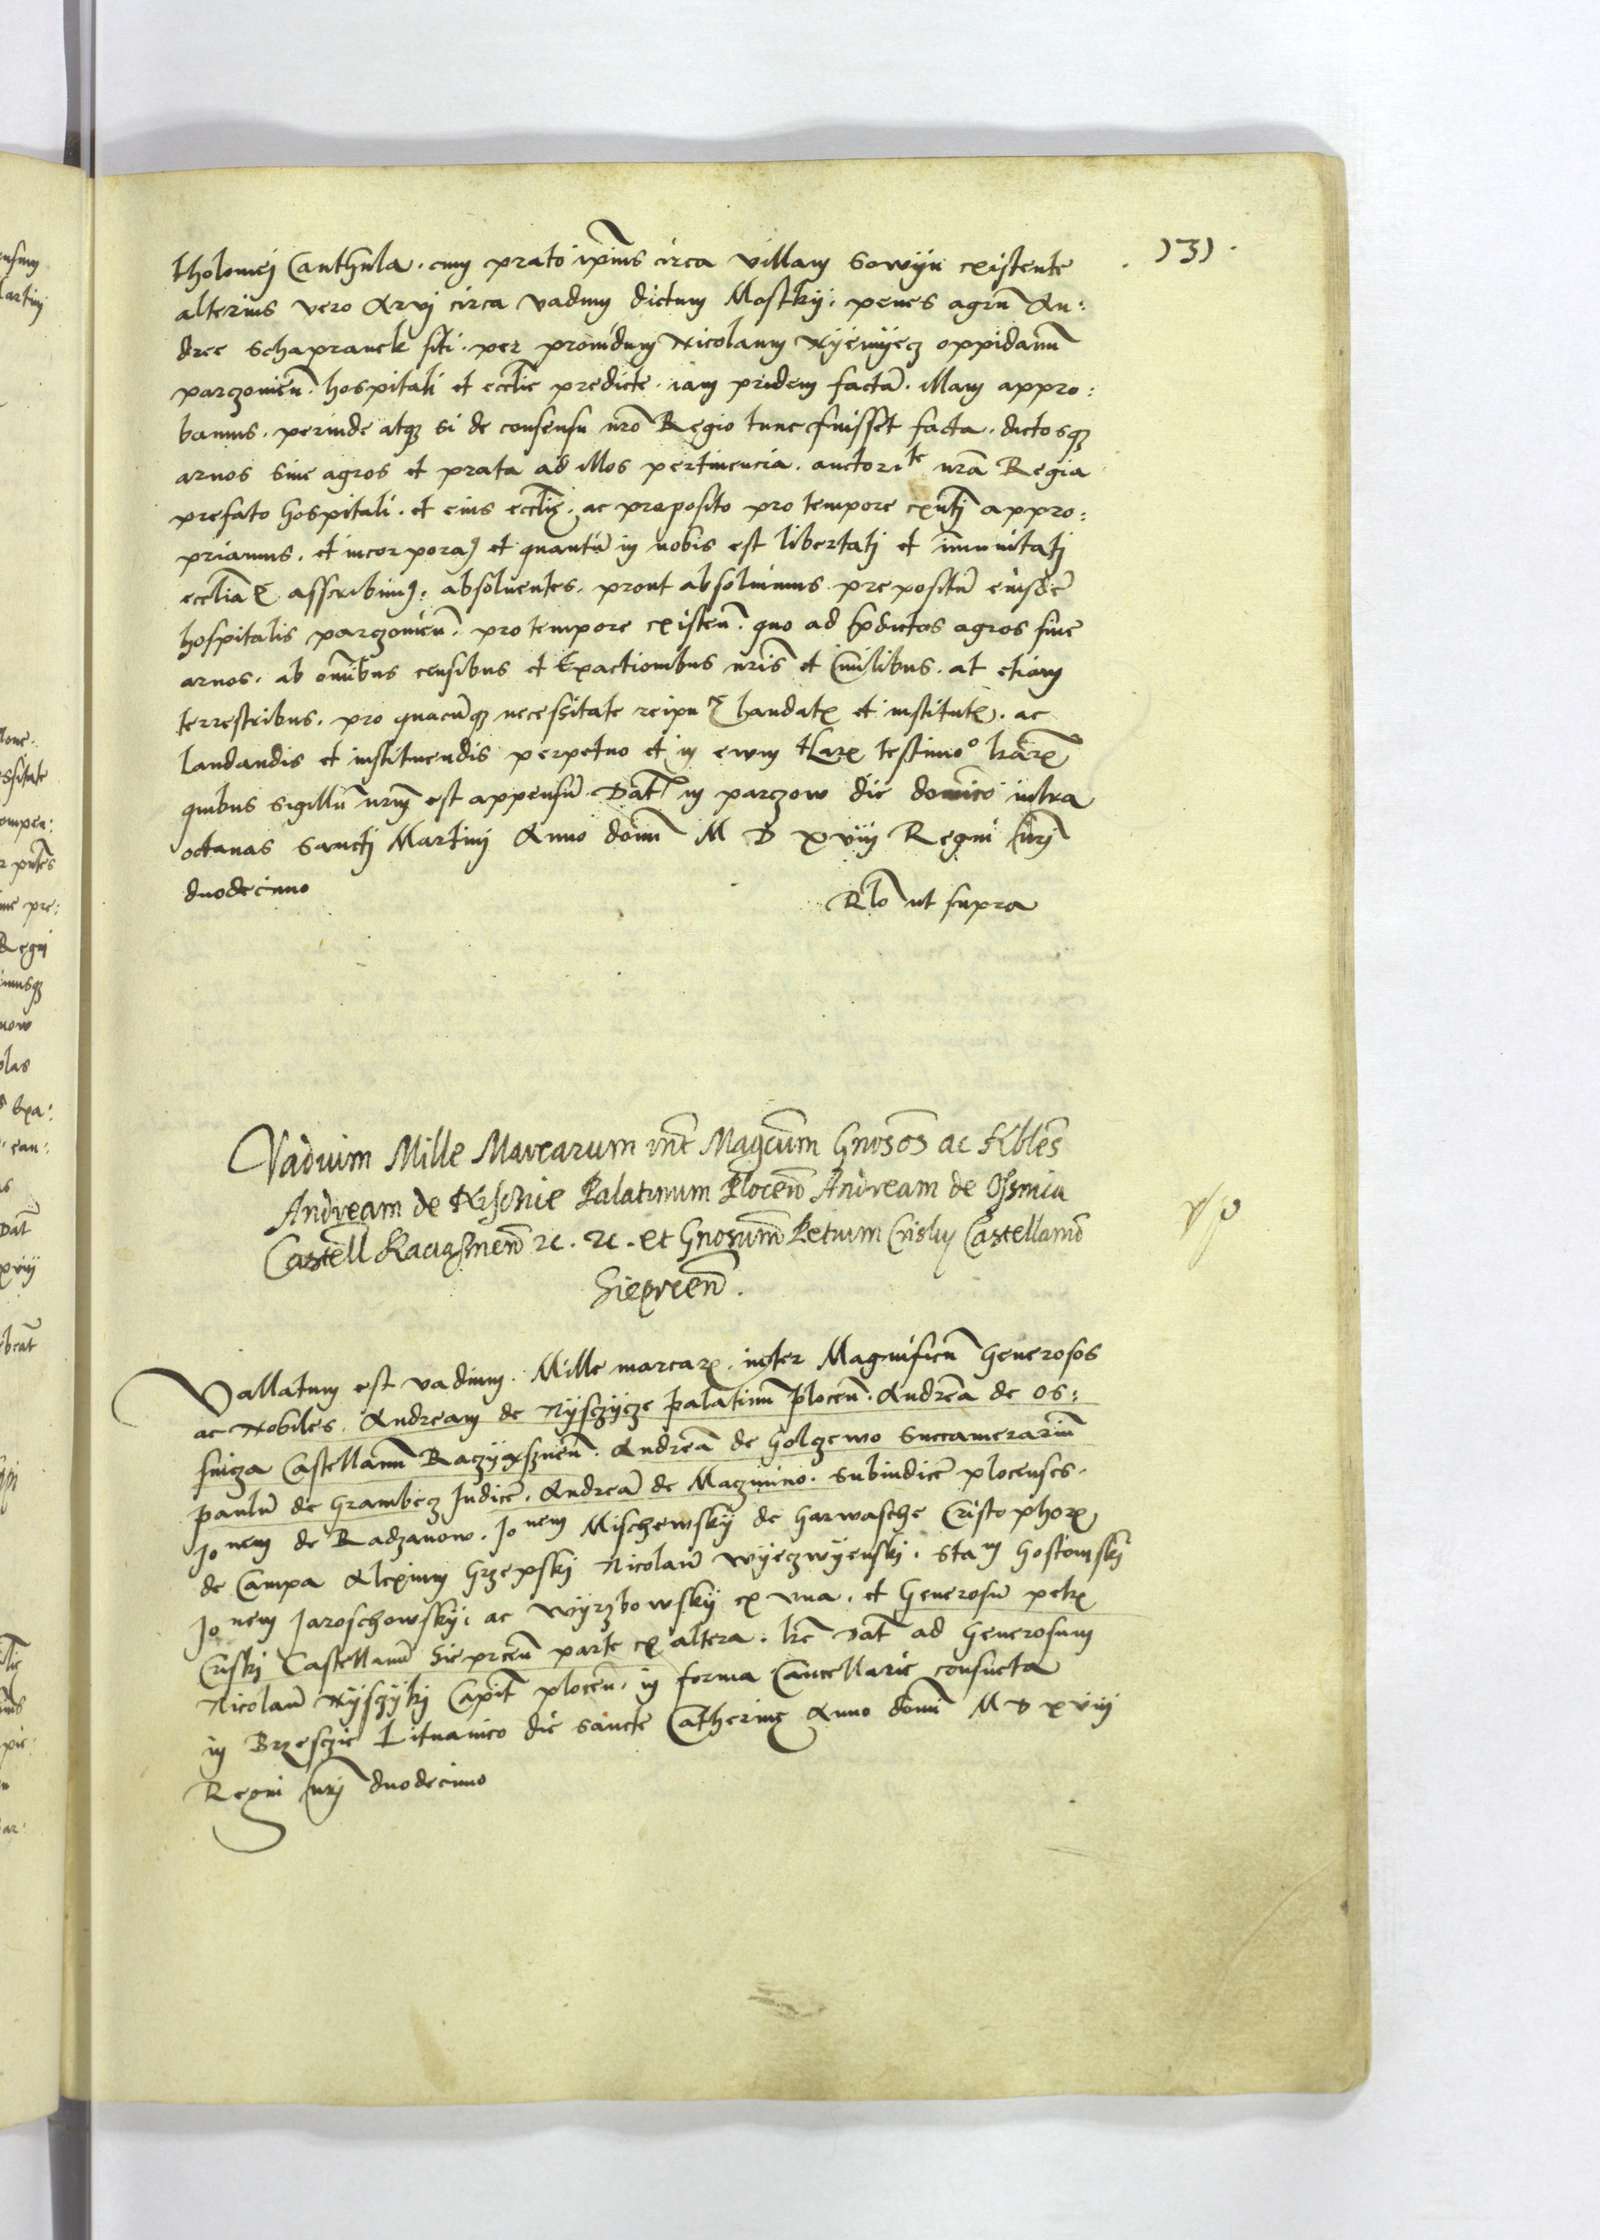 131.
tholomej Canthula. cum prato ipsius circa villam Sowyn existente
alterius vero Arvj circa vadum dictum Mostky. penes agrū An:
dree Schapranek siti. per providum Nicolaum Nyemyecz oppidanū
parczovieñ. hospitali et ecclie predicte. iam pridem factā. illam appro:
bamus. perinde atq si de consensu nrō Regio tunc fuisset facta. dictosq
arvos sive agros et prata ad illos pertinencia. auctorite nrā Regia
prefato hospitali. et eius ecclie. ac preposito pro tempore exnti appro:
priamus. et incorpora et quantū in nobis est libertatj et imunitatj
ecclia asscribim. absolventes. prout absolvimus prepositū eiusdē
hospitalis parczovieñ. pro tempore existeñ. quo ad pdictos agros sive
arvos. ab omibus censibus et Exactionibus nris et Civilibus. at etiam
terrestribus. pro quacūq necessitate reipu laudat et institut. ac
laudandis et instituendis perpetuo et in evum har testimoº lrār
quibus sigillū nrm est appensū Dat in parczow die domico intra
octavas Sanctj Martinj Anno domī M D xviij Regni nrj
duodecimo
Rlo ut supra
Vadium Mille Marcarum int Magcum Gnosos ac Nbles
Andream de Palatinum Plocen Andream de Ossnica
Castell 2c. 2c. et Gnosum Petrum Castellanū
Siepreen.
v/p
Vallatum est vadium. Mille marcar. inter Magnificū Generosos
ac Nobiles. Andream de Nysczycze palatinū plocen. Andreā de Os:
snicza Castellanū Raczyaszneñ. Andreā de Golczewo Succamerariū
paulū de Grambcz Judicē. Andreā de Maczmino. Subiudicē plocenses.
Jonem de Radzanow. Jonem Mischewsky de Garwasche Cristophor
de Campa Alexium Grzepskj Nicolaū Wyeczwyenskj. Stam Gostomskj
Jonem Jaroschowskyi ac Wyrzbowsky ex una. et Generosū petr
Criskj Castellanū Sieprceñ parte ex altera. lre Dat ad Generosum
Nicolaū Nysczykj Capit ploceñ. in forma Cancellarie consueta
in Brzesczie Lituanico die Sancte Catherine Anno domī M D xviij
Regni nrj duodecimo